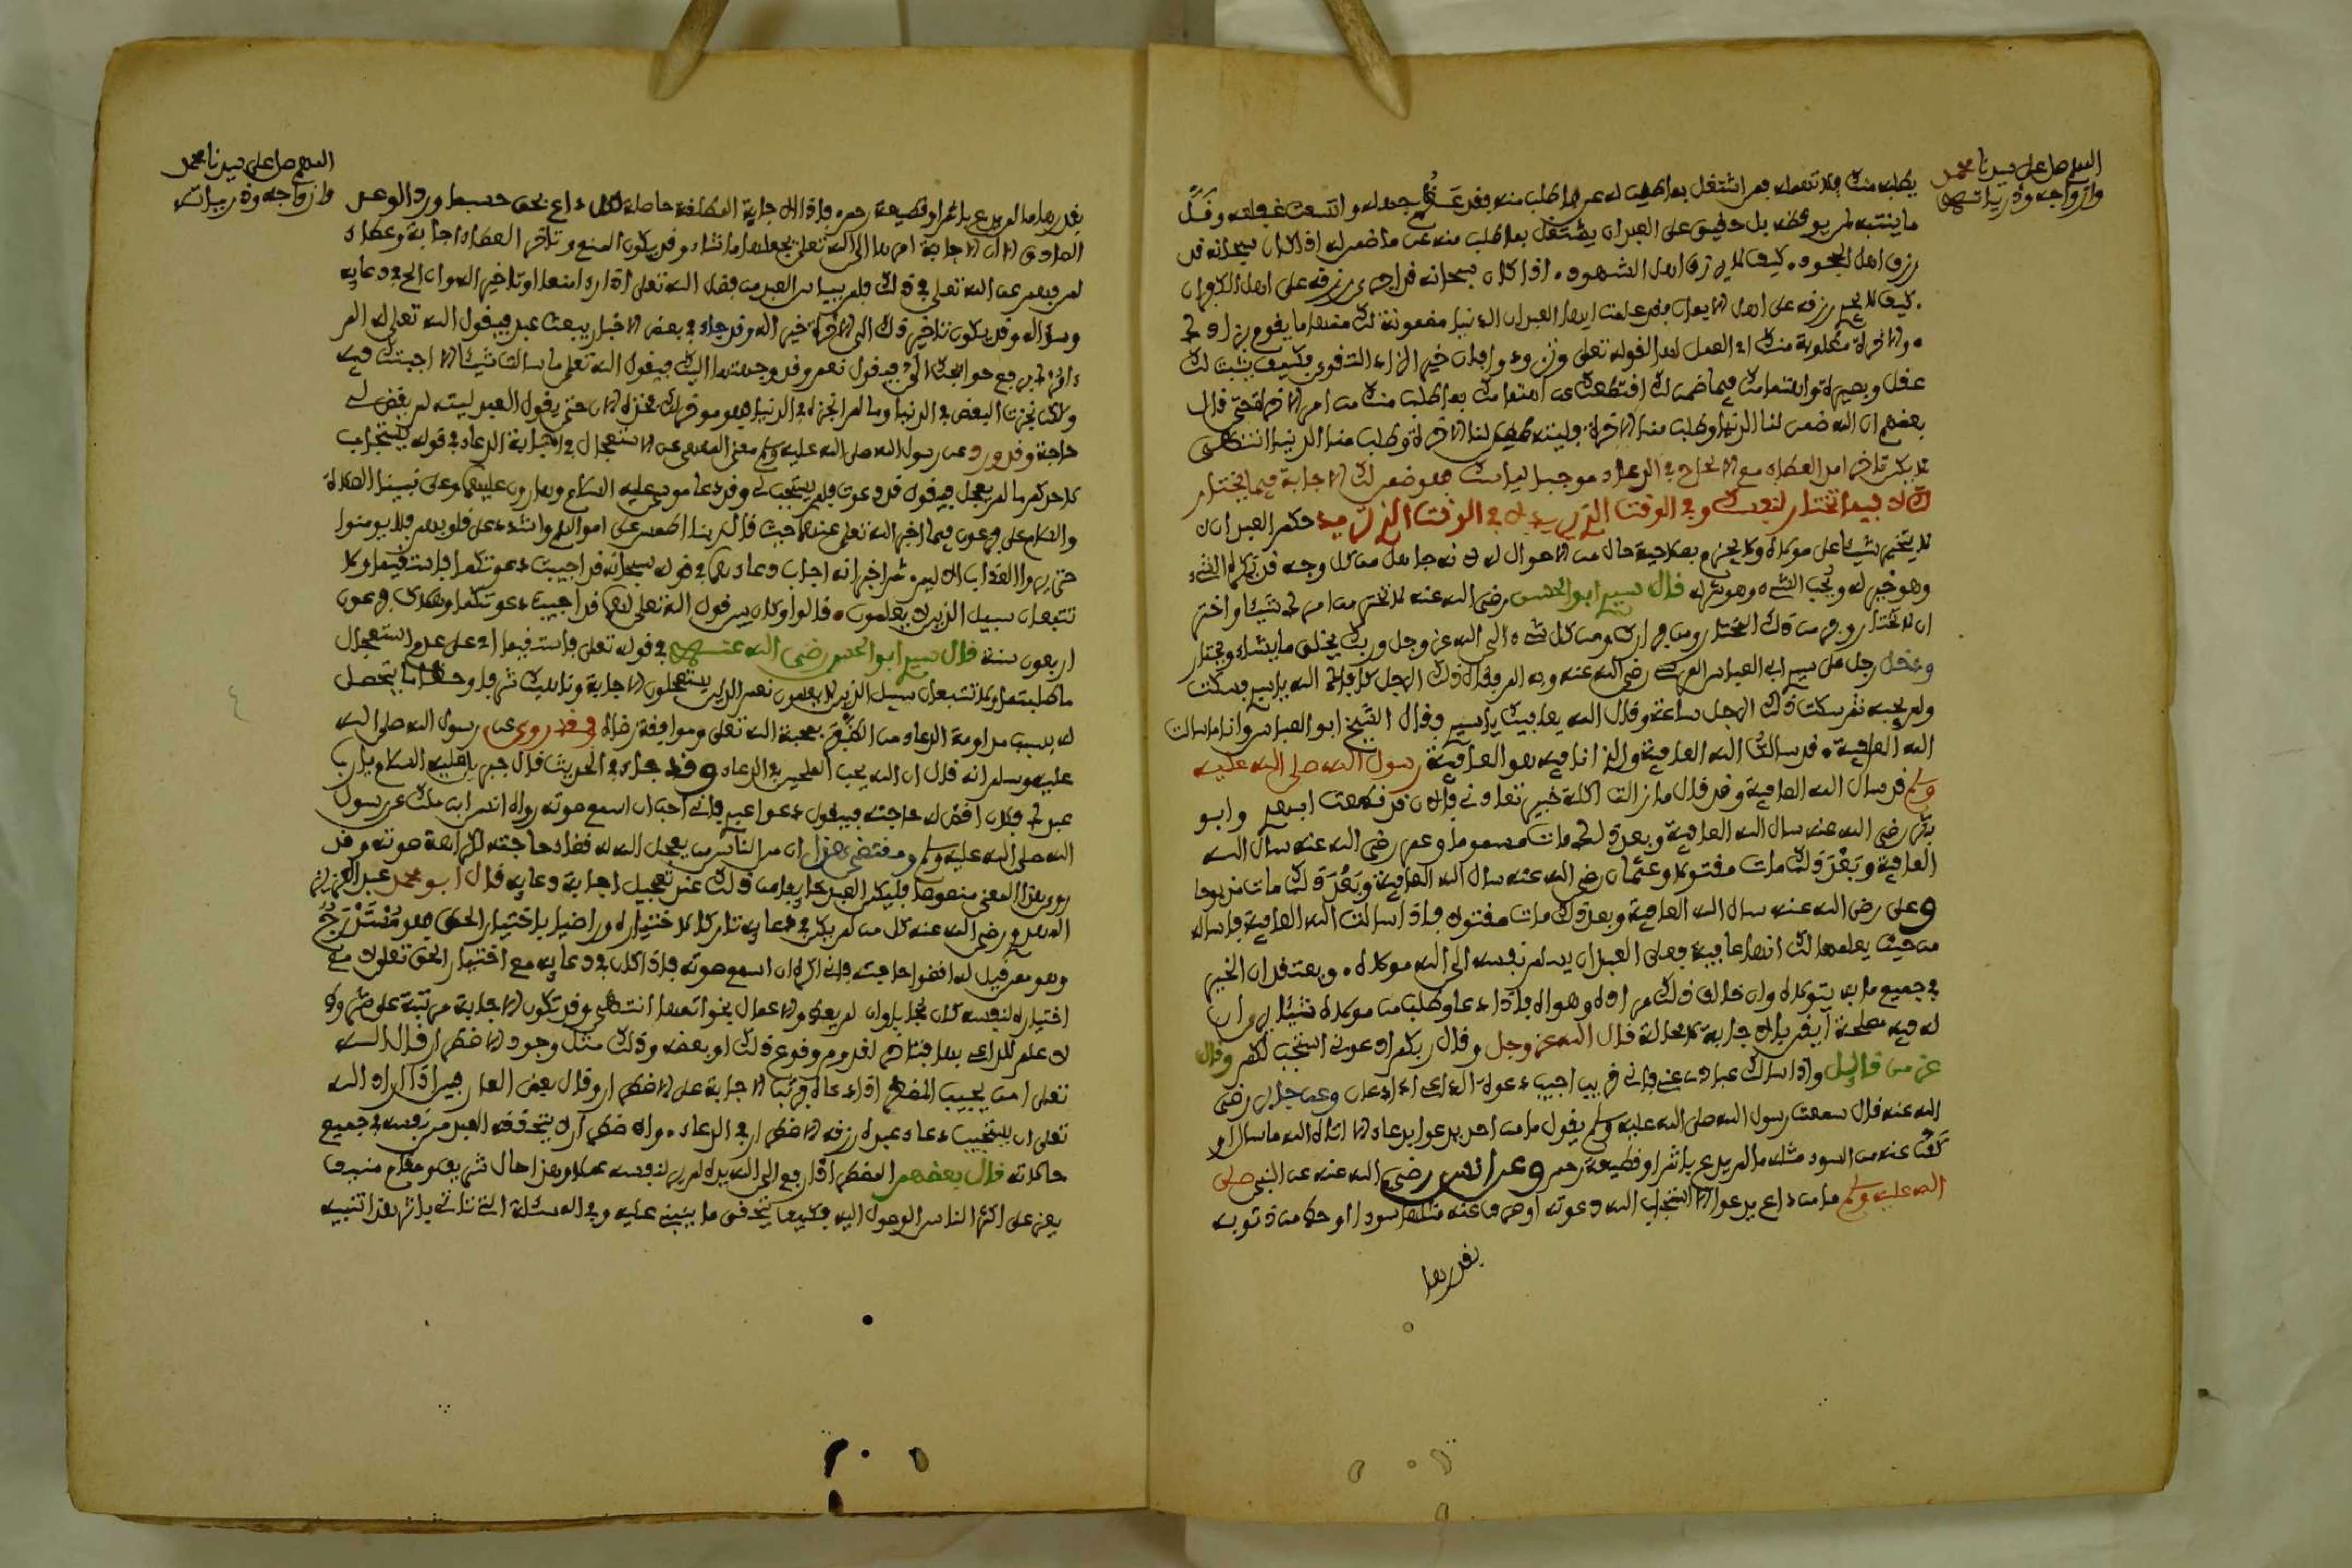 اللهم صل على سيدنا محمد
وازواجه وذريته
يطلبه منك فلا تهمله فمن اشتغل بما ضمن له عن ما طلب منه فقد عظم جهله واتسعت غفلته وقل
ما ينتبه لمن يوقظه بل حقيق على العبد ان يشتغل بما طلب منه عن ما ضمن له اذا كان سبحانه قد
رزق اهل الجحود كيف لا يرزق اهل الشهود اذا كان سبحانه قد اجرى رزقه على اهل الكفران
كيف لا يجري رزقه على اهل الايمان فقد علمت ايها العبد ان الدنيا مضمونة لك مضمون لك منها ما يقوم بك
والاخرة مطلوبة منك اي العمل لها لقوله تعلى وتزودوا فان خير الزاد التقوى فكيف يثبت لك
عقل وبصيرة واهتمامك فيما ضمن لك اقتطعك عن اهتمامك بما طلب منك من امر الاخرة حتى قال
بعضهم ان الله ضمن لنا الدنيا وطلب منا الاخرة فليته ضمن لنا الاخرة وطلب منا الدنيا انتهى
لا يكن تاخر امد العطاء مع الالحاح في الدعاء موجبا لياسك فهو ضمن لك الاجابة فيما يختار
لك لا فيما تختار لنفسك وفي الوقت الذي يريد لا في الوقت الذي تريد حكم العبد ان
لا يتخير شيئا على مولاه ولا يجزم بصلاحية حال من الاحوال له لانه جاهل من كل وجه قد يكره الشيء
وهو خير له ويحب الشيء وهو شر له قال سيدي ابو الحسن رضي الله عنه لا تختر من امرك شيئا واختر
ان لا تختار وفر من ذلك المختار ومن فرارك ومن كل شيء الى الله عز وجل وربك يخلق ما يشاء ويختار
ودخل رجل على سيدي ابي العباس المرسي رضي الله عنه وبه الم فقال ذلك الرجل عافاك الله يا سيدي فسكت
ولم يجبه ثم سكت ذلك الرجل ساعة وقال الله يعافيك يا سيدي فقال الشيخ ابو العباس وانا ما سالت
الله العافية قد سالت الله العافية والذي انا فيه هو العافية رسول الله صلى الله عليه
وسلم قد سال الله العافية وقد قال ما زالت اكلة خيبر تعاودني فالان قد قطعت ابهري وابو
بكر رضي الله عنه سال الله العافية وبعد ذلك مات مسموما وعمر رضي الله عنه سال الله
العافية وبعد ذلك مات مقتولا وعثمان رضي الله عنه سال الله العافية وبعد ذلك مات مذبوحا
وعلي رضي الله عنه سال الله العافية وبعد ذلك مات مقتولا فاذا سالت الله العافية فاساله
من حيث يعلمها لك انها عافية فعلى العبد ان يسلم نفسه الى الله مولاه ويعتقد ان الخير
في جميع ما به يتولاه وان خالف ذلك مراده وهواه فاذا دعا وطلب من مولاه شيئا يرى ان
له فيه مصلحة ايقن بالاجابة لا محالة قال الله عز وجل وقال ربكم ادعوني استجب لكم وقال
عز من قائل واذا سالك عبادي عني فاني قريب اجيب دعوة الداعي اذا دعان وعن جابر رضي
الله عنه قال سمعت رسول الله صلى الله عليه وسلم يقول ما من احد يدعوا بدعاء الا اتاه الله ما سال او
كف عنه من السوء مثله ما لم يدع باثم او قطيعة رحم وعن انس رضي الله عنه عن النبي صلى
الله عليه وسلم ما من داع يدعوا الا استجاب الله دعوته او صرف عنه مثلها سوءا او حط من ذنوبه
بقدرها
اللهم صل على سيدنا محمد
وازواجه وذرياته
بقدرها ما لم يدع باثم او قطيعة رحم فاذا الاجابة المطلقة حاصلة لكل داع بحق حسبما ورد الوعد
الصادق الا ان الاجابة امرها الى الله تعلى يجعلها متى شاء وقد يكون المنع وتاخر العطاء اجابة وعطاء
لمن فهم عن الله تعلى في ذلك فلا ييأس العبد من فضل الله تعلى اذا راى منعا او تاخيرا وان الح في دعائه
وسؤاله وقد يكون تاخير ذلك الى الاخرة خير له وقد جاء في بعض الاخبار يبعث عبد فيقول الله تعلى له الم
امرك برفع حوائجك الي فيقول نعم وقد رفعتها اليك فيقول الله تعلى ما سالت شيئا الا اجبتك فيه
ولكن نجزت البعض في الدنيا وما لم انجزه في الدنيا فهو مدخر لك فخذه الان حتى يقول العبد ليته لم يقض لي
حاجة وقد ورد عن رسول الله صلى الله عليه وسلم معنى النهي عن الاستعجال في اجابة الدعاء في قوله يستجاب
لاحدكم ما لم يعجل فيقول قد دعوت فلم يستجب لي وقد دعا موسى عليه السلام وهارون عليهما وعلى نبينا الصلاة
والسلام على فرعون فيما اخبر الله تعلى عنهما حيث قال ربنا اطمس على اموالهم واشدد على قلوبهم فلا يومنوا
حتى يروا العذاب الاليم ثم اخبر انه اجاب دعاءهما في قوله سبحانه قد اجيبت دعوتكما فاستقيما ولا
تتبعان سبيل الذين لا يعلمون قالوا وكان بين قول الله تعلى لهما قد اجيبت دعوتكما وهلاك فرعون
اربعون سنة قال سيدي ابو الحسن رضي الله عنه في قوله تعلى فاستقيما اي على عدم استعجال
ما طلبتما ولا تتبعان سبيل الذين لا يعلمون هم الذين يستعجلون الاجابة وناهيك شرفا وحظا ما يتحصل
له بسبب مداومة الدعاء من محبة الله تعلى وموافقة رضاه وقد روي عن رسول الله صلى الله
عليه وسلم انه قال ان الله يحب الملحين في الدعاء وقد جاء في الحديث قال جبريل عليه السلام يا رب
عبدك فلان اقض له حاجته فيقول دعوا عبدي فاني احب ان اسمع صوته رواه انس ابن مالك عن رسول
الله صلى الله عليه وسلم ومقتضى هذا ان من الناس من يعجل الله له قضاء حاجته لكراهة صوته وقد
روي هذا المعنى منصوصا فليكن العبد خائفا من ذلك عند تعجيل اجابة دعائه قال ابو محمد عبد العزيز
المهدوي رضي الله عنه كل من لم يكن في دعائه تاركا لاختياره وراضيا باختيار الحق فهو مستدرج
وهو ممن قيل له اقضوا حاجته فاني اكره ان اسمع صوته فاذا كان في دعائه مع اختيار الحق تعلى لا مع
اختياره لنفسه كان مجابا وان لم يعط والاعمال بخواتمها انتهى وقد تكون الاجابة مرتبة على شروط
لا علم للداعي بها فتاخر لعدم وقوع ذلك او بعضه وذلك مثل وجود الاضطرار قال الله
تعلى امن يجيب المضطر اذا دعاه فرتب الاجابة على الاضطرار وقال بعض العارفين اذا اراد الله
تعلى ان يستجيب دعاء عبده رزقه الاضطرار في الدعاء والاضطرار ان يتحقق العبد من نفسه في جميع
حالاته قال بعضهم المضطر اذا رفع الى الله يده لم ير لنفسه عملا وهذا حال شريف ومقام منيف
يعز على اكثر الناس الوصول اليه فكيف يتحقق ما يبنى عليه وفي المسئلة التي تاتي باثر هذا تنبيه